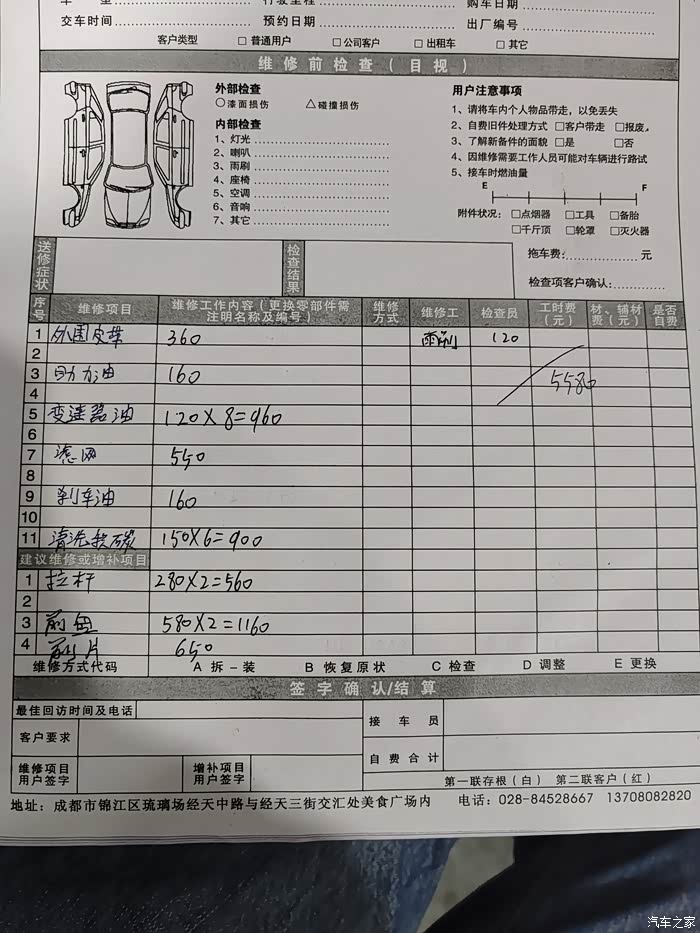 交车时间 预约日期 出厂编号
客户类型 □ 普通用户 □ 公司客户 □ 出租车 □ 其它
维修前检查(目视)
外部检查
○漆面损伤 △碰撞损伤
内部检查
1、灯光
2、喇叭
3、雨刷
4、座椅
5、空调
6、音响
7、其它
用户注意事项
1、请将车内个人物品带走，以免丢失
2、自费旧件处理方式 □客户带走 □报废
3、了解新备件的面貌 □是 □否
4、因维修需要工作人员可能对车辆进行路试
5、接车时燃油量
E F
附件状况：□点烟器 □工具 □备胎
□千斤顶 □轮罩 □灭火器
送修症状
检查结果
拖车费：元
检查项客户确认：
序号 维修项目 维修工作内容(更换零部件需注明名称及编号) 维修方式 维修工 检查员 工时费(元) 材、辅材费(元) 是否自费
1 外围皮带 360 雨刷 120
2
3 助力油 160 5580
4
5 变速器油 120×8=960
6
7 滤网 550
8
9 刹车油 160
10
11 清洗积碳 150×6=900
建议维修或增补项目
1 拉杆 280×2=560
2
3 前盘 580×2=1160
4 前片 650
维修方式代码 A 拆－装 B 恢复原状 C 检查 D 调整 E 更换
签字确认/结算
最佳回访时间及电话
接车员
客户要求
自费合计
维修项目用户签字
增补项目用户签字
第一联存根(白) 第二联客户(红)
地址：成都市锦江区琉璃场经天中路与经天三街交汇处美食广场内 电话：028-84528667 13708082820
汽车之家